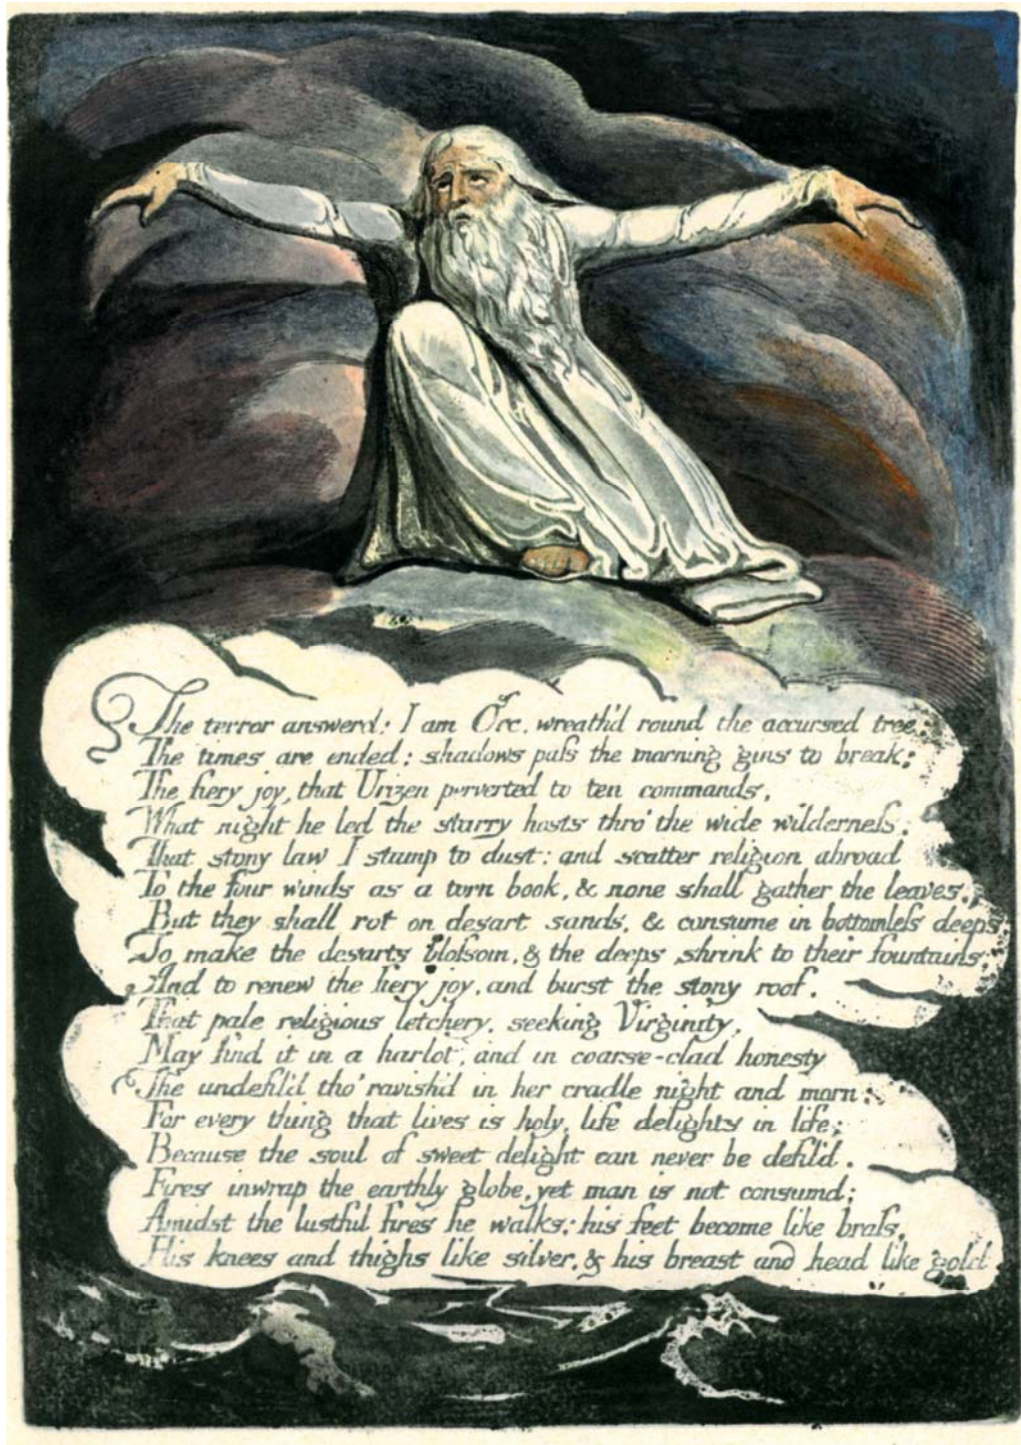 The terror answerd: I am Orc, wreath'd round the accursed tree:
The times are ended; shadows pass the morning gins to break;
The fiery joy, that Urizen perverted to ten commands,
What night he led the starry hosts thro' the wide wilderness:
That stony law I stamp to dust: and scatter religion abroad
To the four winds as a torn book, & none shall gather the leaves;
But they shall rot on desart sands, & consume in bottomless deeps;
To make the desarts blossom, & the deeps shrink to their fountains,
And to renew the fiery joy, and burst the stony roof.
That pale religious letchery, seeking Virginity,
May find it in a harlot, and in coarse-clad honesty
The undefil'd tho' ravish'd in her cradle night and morn:
For every thing that lives is holy, life delights in life;
Because the soul of sweet delight can never be defil'd.
Fires inwrap the earthly globe, yet man is not consumd;
Amidst the lustful fires he walks: his feet become like brass,
His knees and thighs like silver, & his breast and head like gold